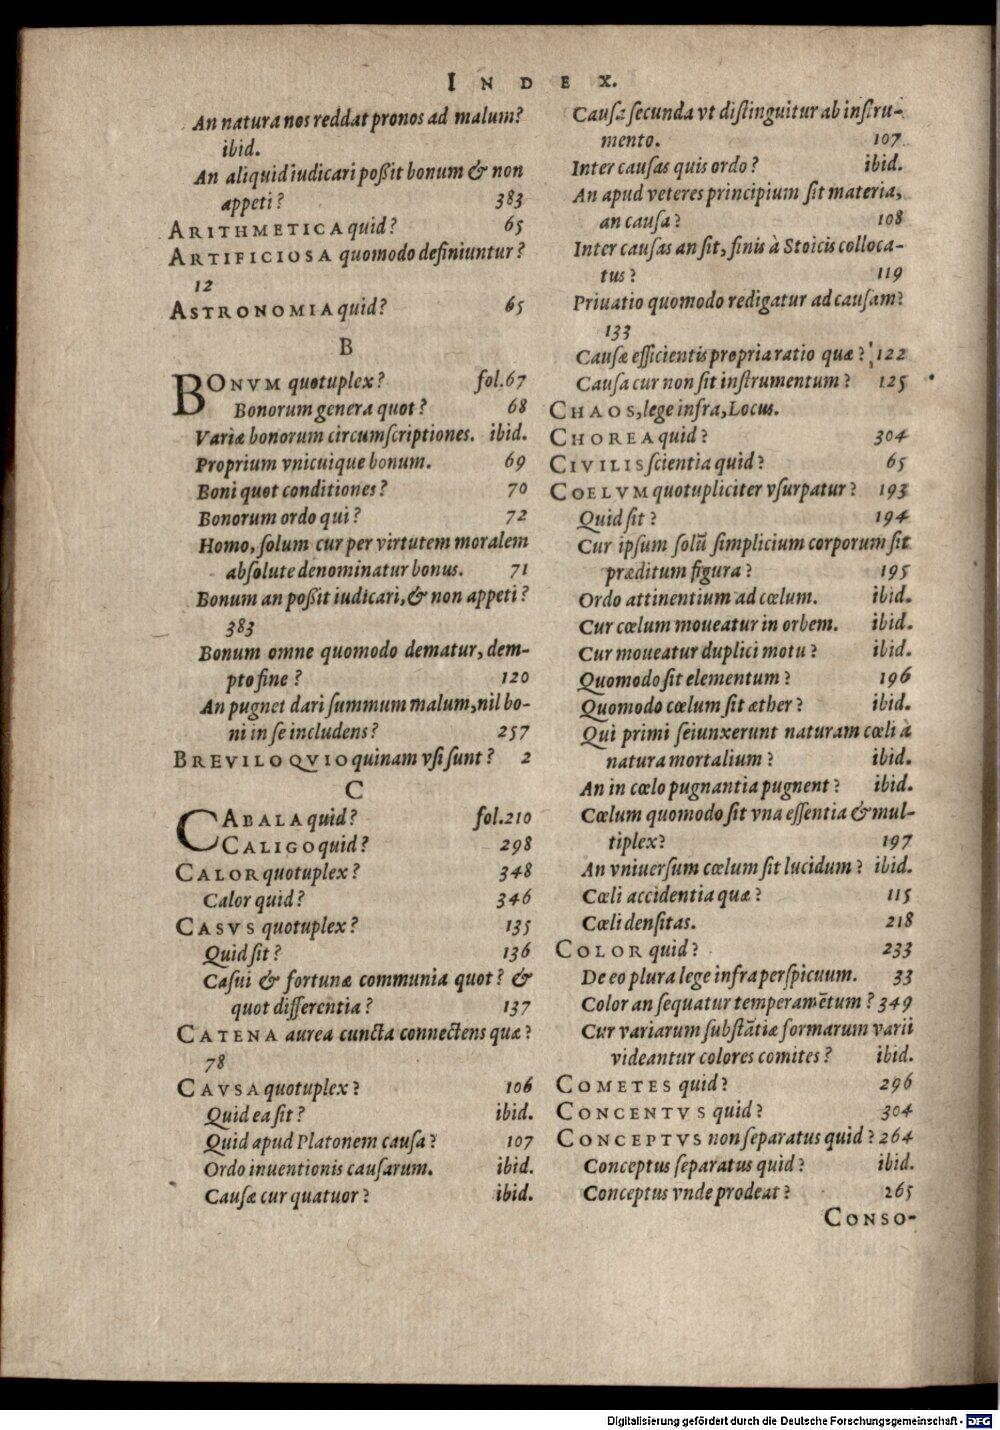 INDEX.
An natura nos reddat pronos ad malum?
ibid.
An aliquid iudicari poßit bonum & non
appeti? 383
ARITHMETICA quid? 65
ARTIFICIOSA quomodo definiuntur?
12
ASTRONOMIA quid? 65
B
BONVM quotuplex? fol.67
Bonorum genera quot? 68
Variæ bonorum circumſcriptiones. ibid.
Proprium vnicuique bonum. 69
Boni quot conditiones? 70
Bonorum ordo qui? 72
Homo, ſolum cur per virtutem moralem
abſolute denominatur bonus. 71
Bonum an poßit iudicari, & non appeti?
383
Bonum omne quomodo dematur, dem-
pto fine? 120
An pugnet dari ſummum malum, nil bo-
ni in ſe includens? 257
BREVILOQVIO quinam vſi ſunt? 2
C
CABALA quid? fol.210
CALIGO quid? 298
CALOR quotuplex? 348
Calor quid? 346
CASVS quotuplex? 135
Quid ſit? 136
Caſui & fortunæ communia quot? &
quot differentia? 137
CATENA aurea cuncta connectens quæ?
78
CAVSA quotuplex? 106
Quid ea ſit? ibid.
Quid apud Platonem cauſa? 107
Ordo inuentionis cauſarum. ibid.
Cauſæ cur quatuor? ibid.
Cauſa ſecunda vt diſtinguitur ab inſtru-
mento. 107
Inter cauſas quis ordo? ibid.
An apud veteres principium ſit materia,
an cauſa? 108
Inter cauſas an ſit, finis à Stoicis colloca-
tus? 119
Priuatio quomodo redigatur ad cauſam?
133
Cauſæ efficientis propria ratio quæ? 122
Cauſa cur non ſit inſtrumentum? 125
CHAOS, lege infra, Locus.
CHOREA quid? 304
CIVILIS ſcientia quid? 65
COELVM quotupliciter vſurpatur? 193
Quid ſit? 194
Cur ipſum ſolũ ſimplicium corporum ſit
præditum figura? 195
Ordo attinentium ad cœlum. ibid.
Cur cœlum moueatur in orbem. ibid.
Cur moueatur duplici motu? ibid.
Quomodo ſit elementum? 196
Quomodo cœlum ſit æther? ibid.
Qui primi ſeiunxerunt naturam cœli à
natura mortalium? ibid.
An in cœlo pugnantia pugnent? ibid.
Cœlum quomodo ſit vna eſſentia & mul-
tiplex? 197
An vniuerſum cœlum ſit lucidum? ibid.
Cœli accidentia quæ? 115
Cœli denſitas. 218
COLOR quid? 233
De eo plura lege infra perſpicuum. 33
Color an ſequatur temperamẽtum? 349
Cur variarum ſubſtãtiæ formarum varii
videantur colores comites? ibid.
COMETES quid? 296
CONCENTVS quid? 304
CONCEPTVS non ſeparatus quid? 264
Conceptus ſeparatus quid? ibid.
Conceptus vnde prodeat? 265
CONSO-
Digitalisierung gefördert durch die Deutsche Forschungsgemeinschaft - DFG